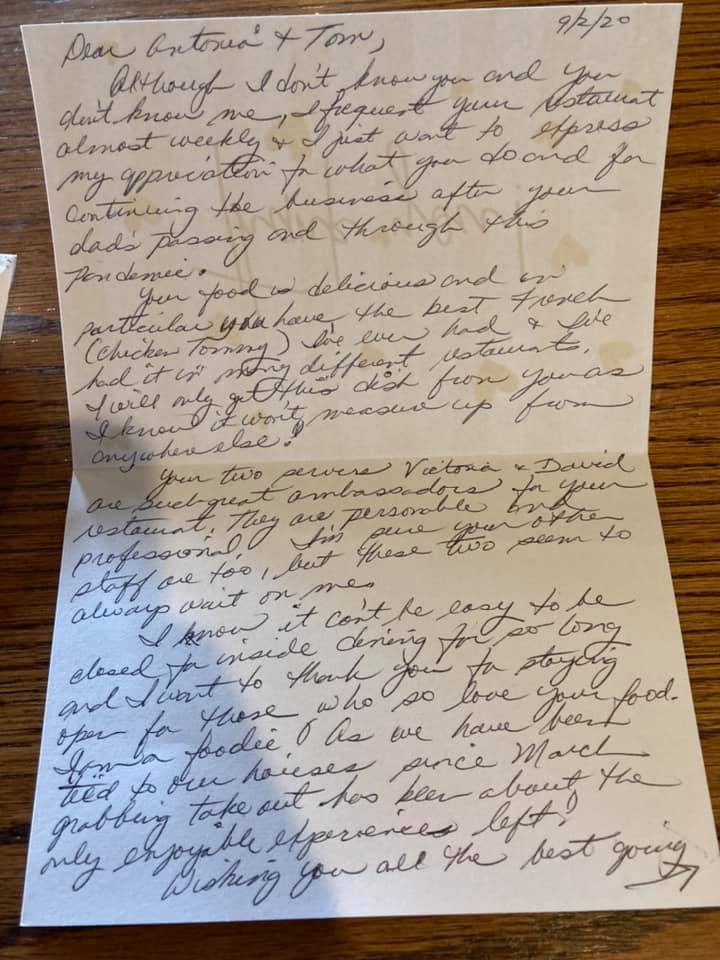 9/2/20
Dear Antonia & Tom,
Although I don't know you and you
don't know me, I frequent your restaurant
almost weekly & I just want to express
my appreciation for what you do and for
continuing the business after your
dad's passing and through this
pandemic.
Your food is delicious and in
particular you have the best French
(Chicken Tommy) I've ever had & I've
had it in many different restaurants.
I will only get this dish from you as
I know it won't measure up from
anywhere else!
Your two servers Victoria & David
are such great ambassadors for your
restaurant. They are personable and
professional. I'm sure your other
staff are too, but these two seem to
always wait on me.
I know it can't be easy to be
closed for inside dining for so long
and I want to thank you for staying
open for those who so love your food.
I am a foodie! As we have been
tied to our houses since March
grabbing take out has been about the
only enjoyable experiences left!
Wishing you all the best going